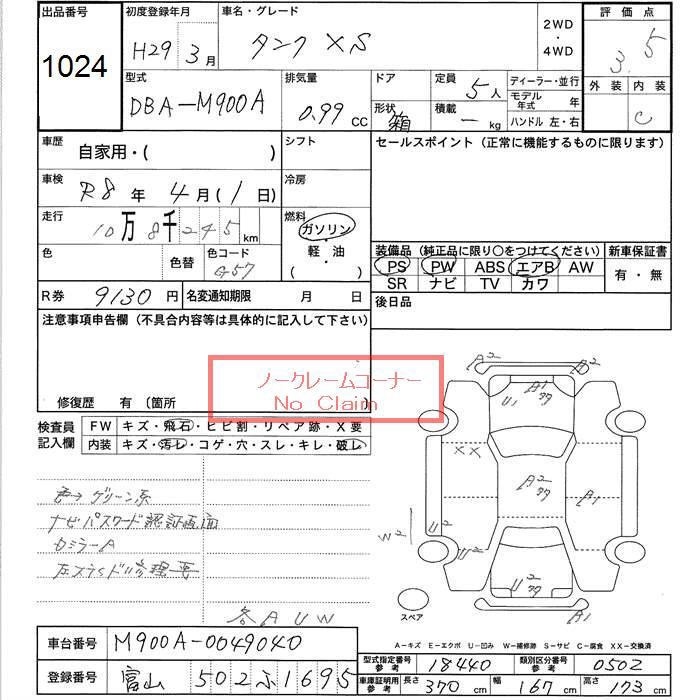 出品番号
1024
初度登録年月
H29 3月
車名・グレード
タンク XS
2WD
・
4WD
評価点
3.5
外装 内装
C
型式
DBA-M900A
排気量
0.99 CC
ドア
形状 箱
定員 5人
積載 - kg
ディーラー・並行
モデル年式 年
ハンドル 左・右
車歴
自家用・( )
シフト
セールスポイント(正常に機能するものに限ります)
車検
R8年 4月(1日)
冷房
走行
10万8千245km
燃料
ガソリン
・
軽・油
( )
色
色替
色コード
G57
装備品(純正品に限り○をつけてください)
新車保証書
PS PW ABS エアB AW
SR ナビ TV カワ
有・無
R券 9130円
名変通知期限 月 日
後日品
注意事項申告欄(不具合内容等は具体的に記入して下さい)
ノークレームコーナー
No Claim
修復歴 有 (箇所
検査員
記入欄
FW キズ・飛石・ヒビ割・リペア跡・X要
内装 キズ・汚レ・コゲ・穴・スレ・キレ・破レ
色→グリーン系
ナビパスワード認証画面
左スライドドア修理要
各AUW
A2 A2
U1 A1
XX
A2
A1
W2 U2
U2 A2
A1
スペア
A-キズ E-エクボ U-凹み W-補修跡 S-サビ C-腐食 XX-交換済
車台番号 M900A-0049040
登録番号 富山 502 ふ 1695
型式指定番号参考 18440
類別区分番号参考 0502
車庫証明用参考 長さ 370cm 幅 167cm 高さ 173cm